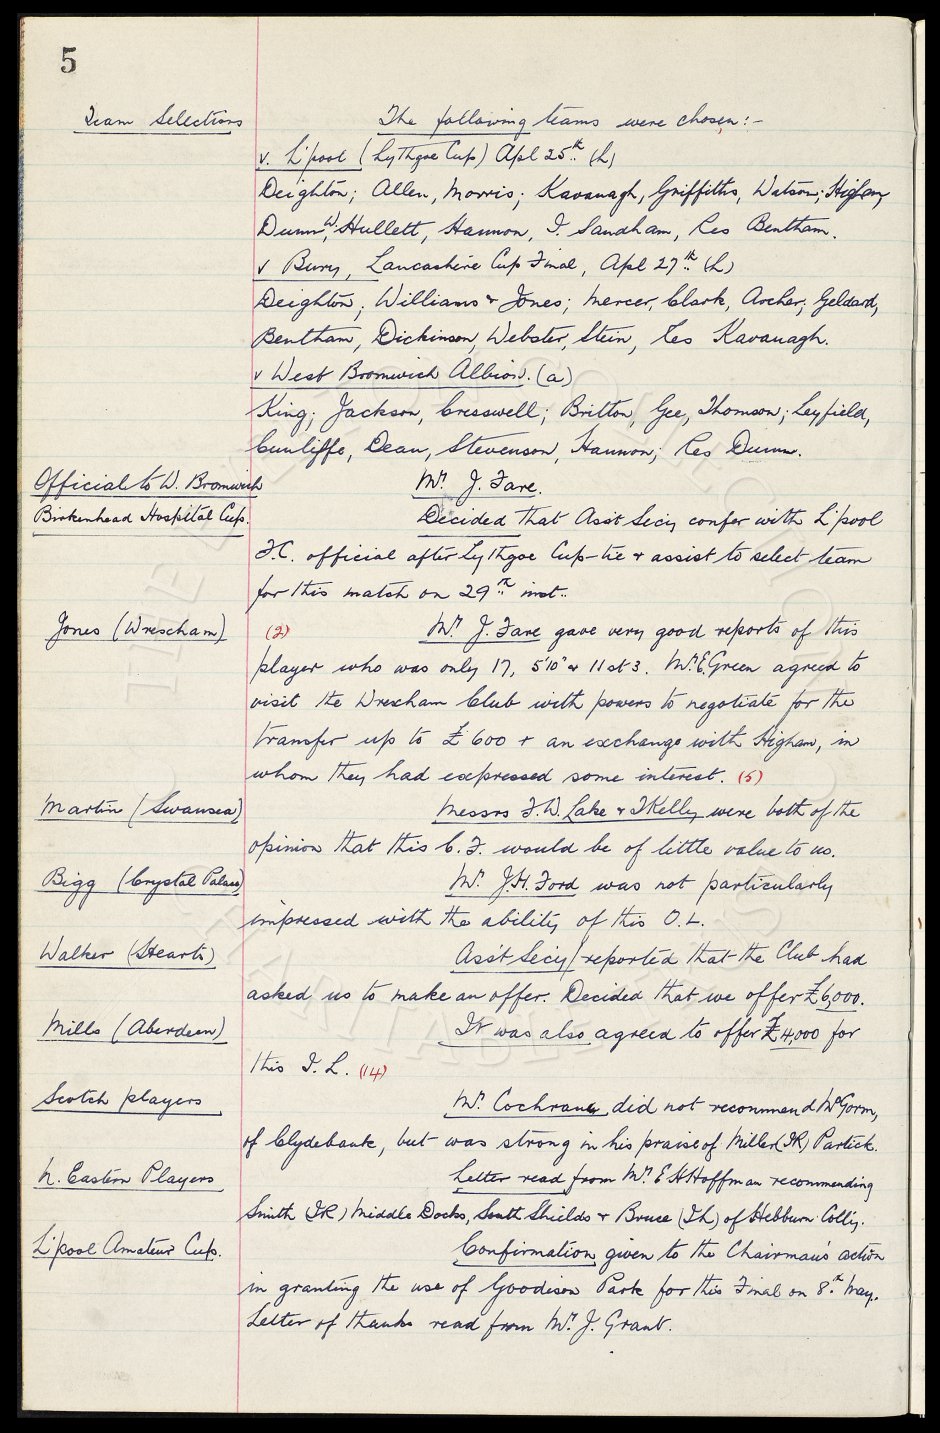 5
Team Selections The following teams were chosen :-
v. L'pool (Lythgoe Cup) Apl 25th. (L)
Deighton; Allen, Morris; Kavanagh, Griffiths, Watson; Higham,
Dunn, W. Hullett, Hannon, I. Sandham, Res Bentham.
v Bury, Lancashire Cup Final, Apl 27th. (L)
Deighton; Williams & Jones; Mercer, Clark, Archer; Geldard,
Bentham, Dickinson, Webster, Stein, Res Kavanagh.
v West Bromwich Albion. (a)
King; Jackson, Cresswell; Britton, Gee, Thomson; Leyfield,
Cunliffe, Dean, Stevenson, Hannon; Res Dunn.
Official to W. Bromwich Mr. J. Fare.
Birkenhead Hospital Cup. Decided that Ass't Secy confer with L'pool
F.C. official after Lythgoe Cup-tie & assist to select team
for this match on 29th. inst..
Jones (Wrexham) (2) Mr. J. Fare gave very good reports of this
player who was only 17, 5'10" & 11 st 3. Mr. E. Green agreed to
visit the Wrexham Club with powers to negotiate for the
transfer up to £600 + an exchange with Higham, in
whom they had expressed some interest. (5)
Martin (Swansea) Messrs F.W. Lake & T Kelly were both of the
opinion that this C.F. would be of little value to us.
Bigg (Crystal Palace) Mr. J.H. Ford was not particularly
impressed with the ability of this O.L.
Walker (Hearts) Ass't Secy/ reported that the Club had
asked us to make an offer. Decided that we offer £6,000.
Mills (Aberdeen) It was also agreed to offer £4,000 for
this I.L. (14)
Scotch players Mr. Cochrane did not recommend McGorm,
of Clydebank, but was strong in his praise of Miller (IR) Partick.
N. Eastern Players Letter read from Mr. E H Hoffman recommending
Smith (IR) Middle Docks, South Shields & Bruce (IL) of Hebburn Colly.
L'pool Amateur Cup. Confirmation given to the Chairman's action
in granting the use of Goodison Park for this Final on 8th. May.
Letter of thanks read from Mr. J. Grant.